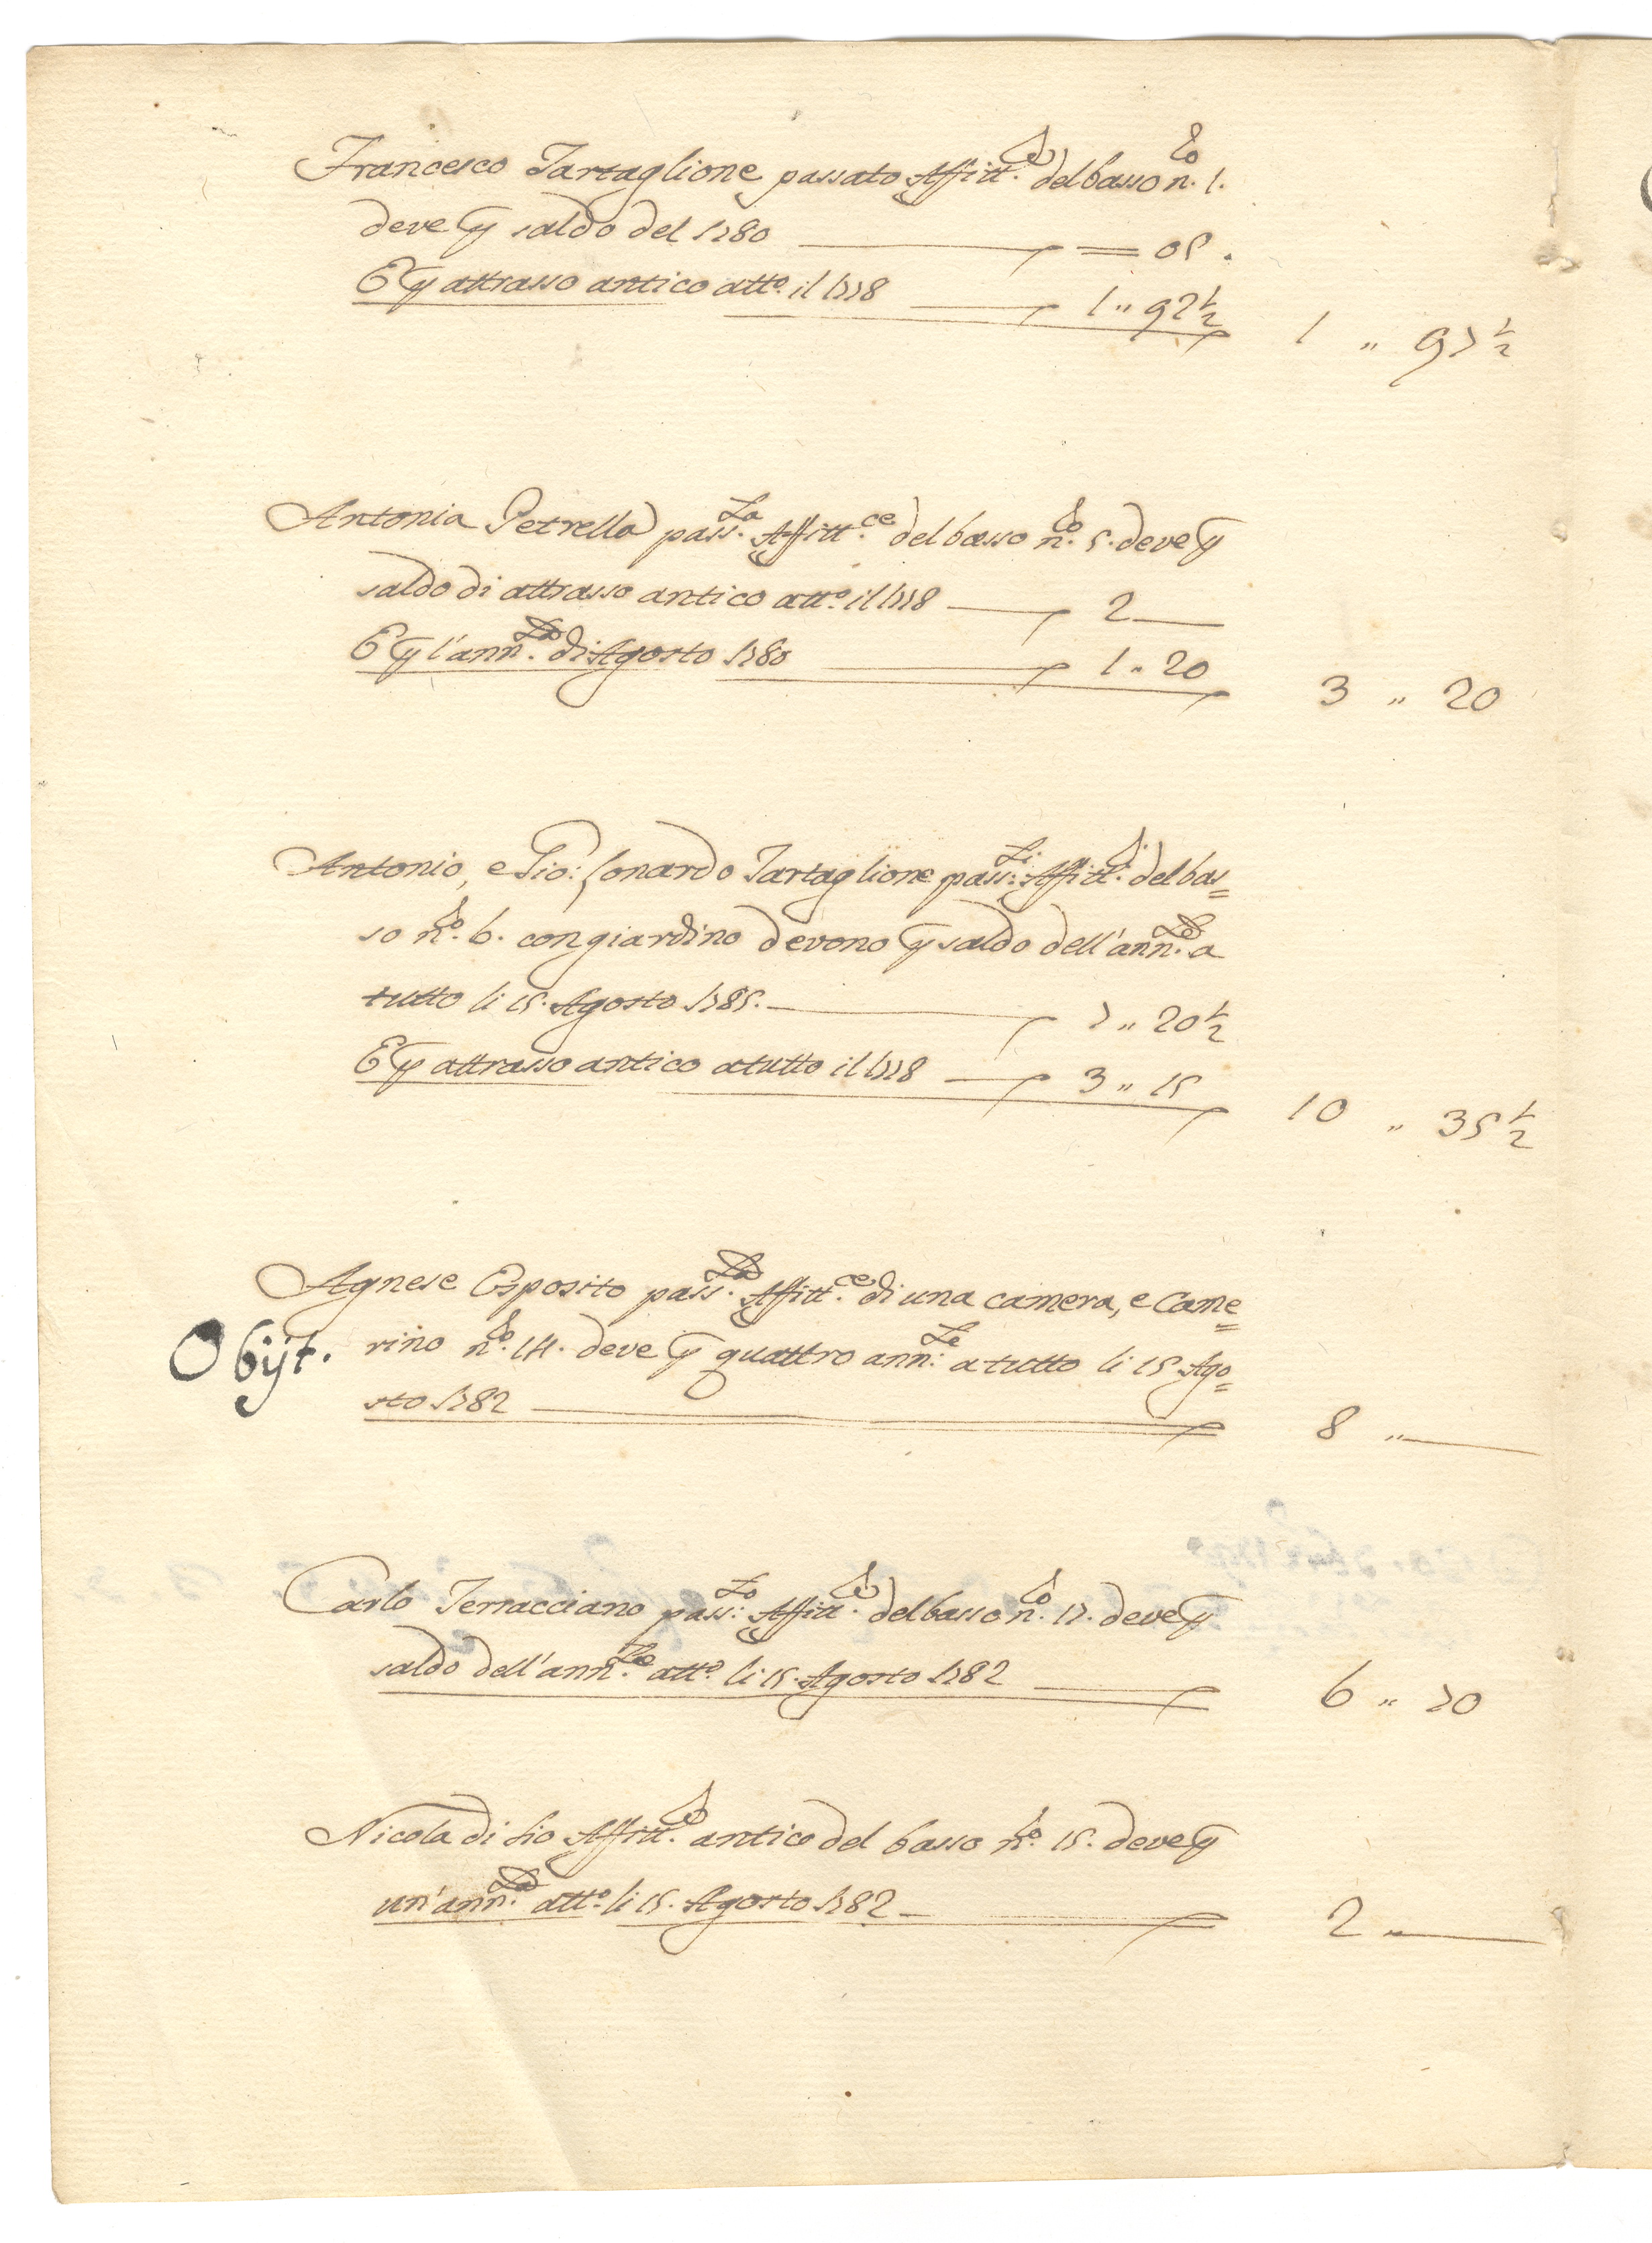 Francesco Tartaglione passato Affitt.re del basso n.ro 1.
deve p saldo del 1780 = 05.
E p attrasso antico att.o il 1778 1 " 92 1/2
1 " 97 1/2
Antonia Petrella pass.ta Affitt.ce del basso n.ro 5. deve p
saldo di attrasso antico att.o il 1778 2 —
E p l'ann.ta di Agosto 1780 1 " 20
3 " 20
Antonio, e Gio: Lonardo Tartaglione pass:ti Affitt.ri del bas=
so n.ro 6. con giardino devono p saldo dell'ann.te a
tutto li 15. Agosto 1785. 7 " 20 1/2
E p attrasso antico a tutto il 1778 3 " 15
10 " 35 1/2
Agnese Esposito pass.ta Affitt.ce di una camera, e Came=
Obijt. rino n.ro 14. deve p quattro ann:te a tutto li 15 Ago=
sto 1782
8 " —
Carlo Terracciano pass:to Affitt.re del basso n.ro 17. deve p
saldo dell'ann.te att.o li 15. Agosto 1782
6 " 70
Nicola di Lio Affitt.re antico del basso n.ro 15. deve p
un'ann.ta att.o li 15. Agosto 1782 —
2 " —